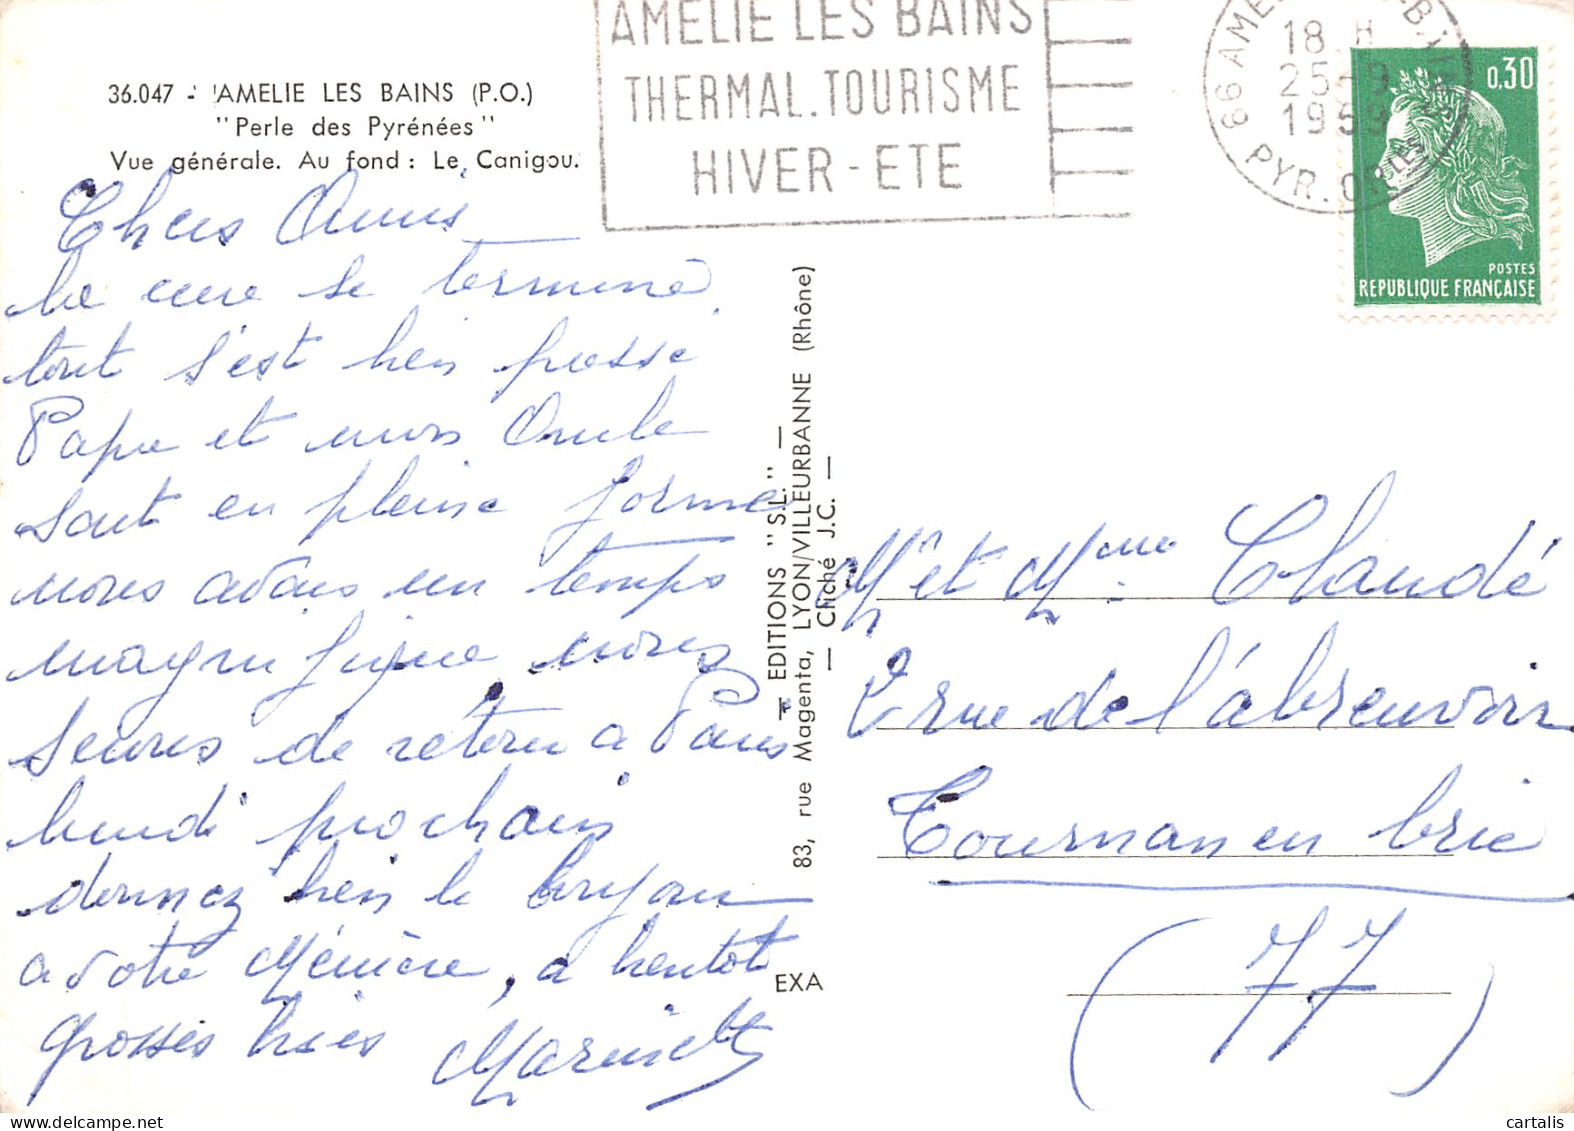 36.047 - AMELIE LES BAINS (P.O.)
"Perle des Pyrénées"
Vue générale. Au fond : Le Canigou.
AMELIE LES BAINS
THERMAL.TOURISME
HIVER - ETE
18 H
25-9
1969
66 PYR. OR
0,30
POSTES
REPUBLIQUE FRANÇAISE
Chers Amis
La cure se termine
tout s'est bien passé
Papa et mon Oncle
sont en pleine forme
nous avons un temps
magnifique nous
serons de retour a Paris
lundi prochain
donnez bien le
a votre , a bientot
grosses bises
EDITIONS "S.L."
83, rue Magenta, LYON/VILLEURBANNE (Rhône)
— Cliché J.C. —
EXA
Mr et Mme Claudé
2 rue de l'abreuvoir
Tournan en brie
(77)
cartalis